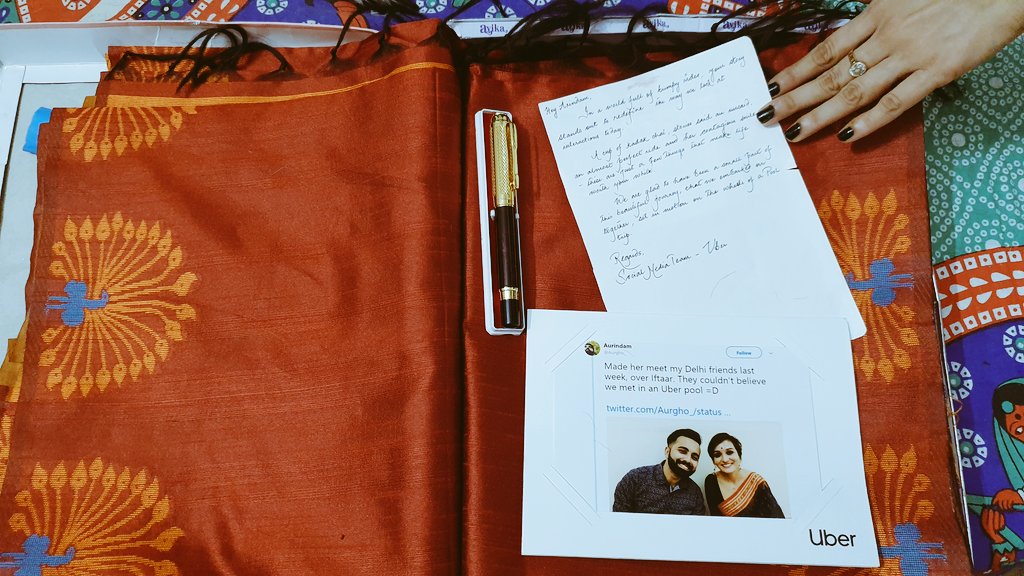 ayika.
ayika.
ayika.
Hey Aurindam,
In a world full of bumpy rides, your story
stands out to redefine the way we look at
interactions today.
A cup of kadak chai, stories said an unsaid
an almost perfect ride and her contagious smile
- these are just a few things that make life
worth your while
We are glad to have been a small part of
this beautiful journey, that we embarked on
together, set in motion on the wheels of a Pool
trip.
Regards,
Social Media Team - Uber
Aurindam
@Aurgho_
Follow
Made her meet my Delhi friends last
week, over Iftaar. They couldn't believe
we met in an Uber pool =D
twitter.com/Aurgho_/status ...
Uber